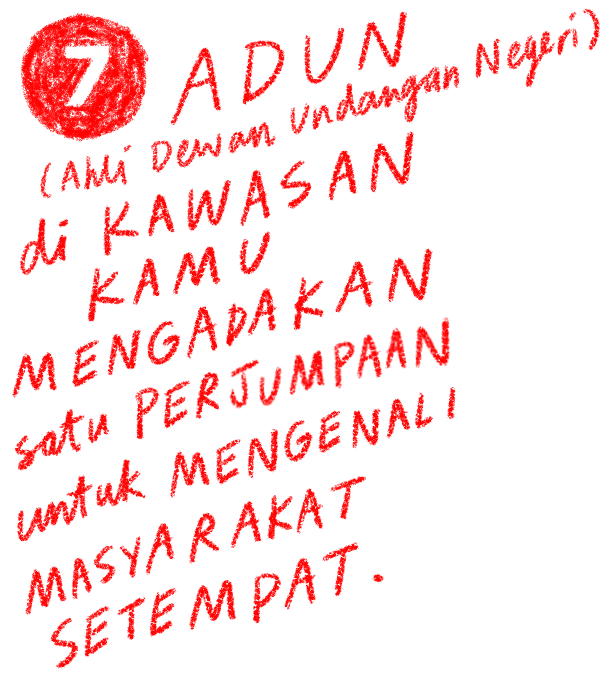 7 ADUN
(Ahli Dewan Undangan Negeri)
di KAWASAN
KAMU
MENGADAKAN
satu PERJUMPAAN
untuk MENGENALI
MASYARAKAT
SETEMPAT.